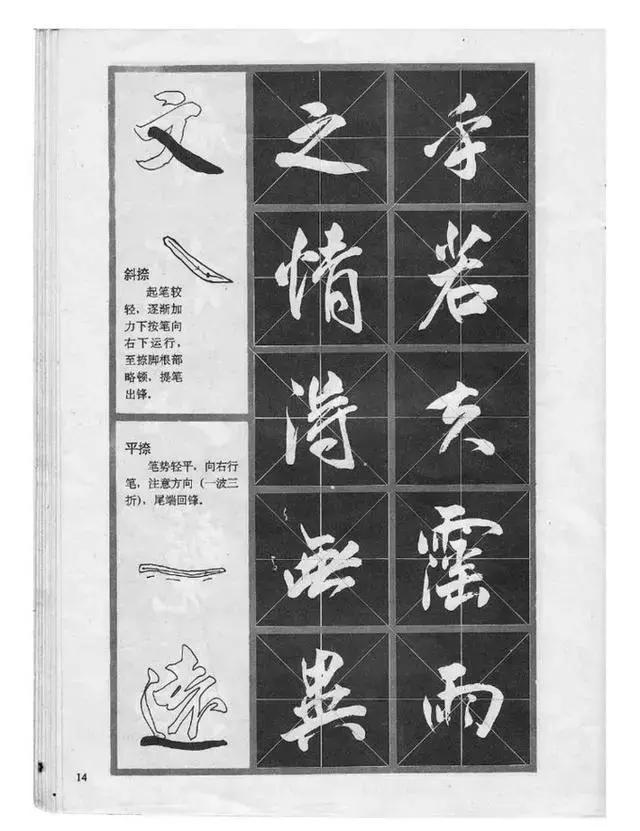 文
斜捺
起笔较
轻，逐渐加
力下按笔向
右下运行，
至捺脚根部
略顿，提笔
出锋。
平捺
笔势轻平，向右行
笔，注意方向（一波三
折），尾端回锋。
遠
之情得無異
乎若夫霪雨
14